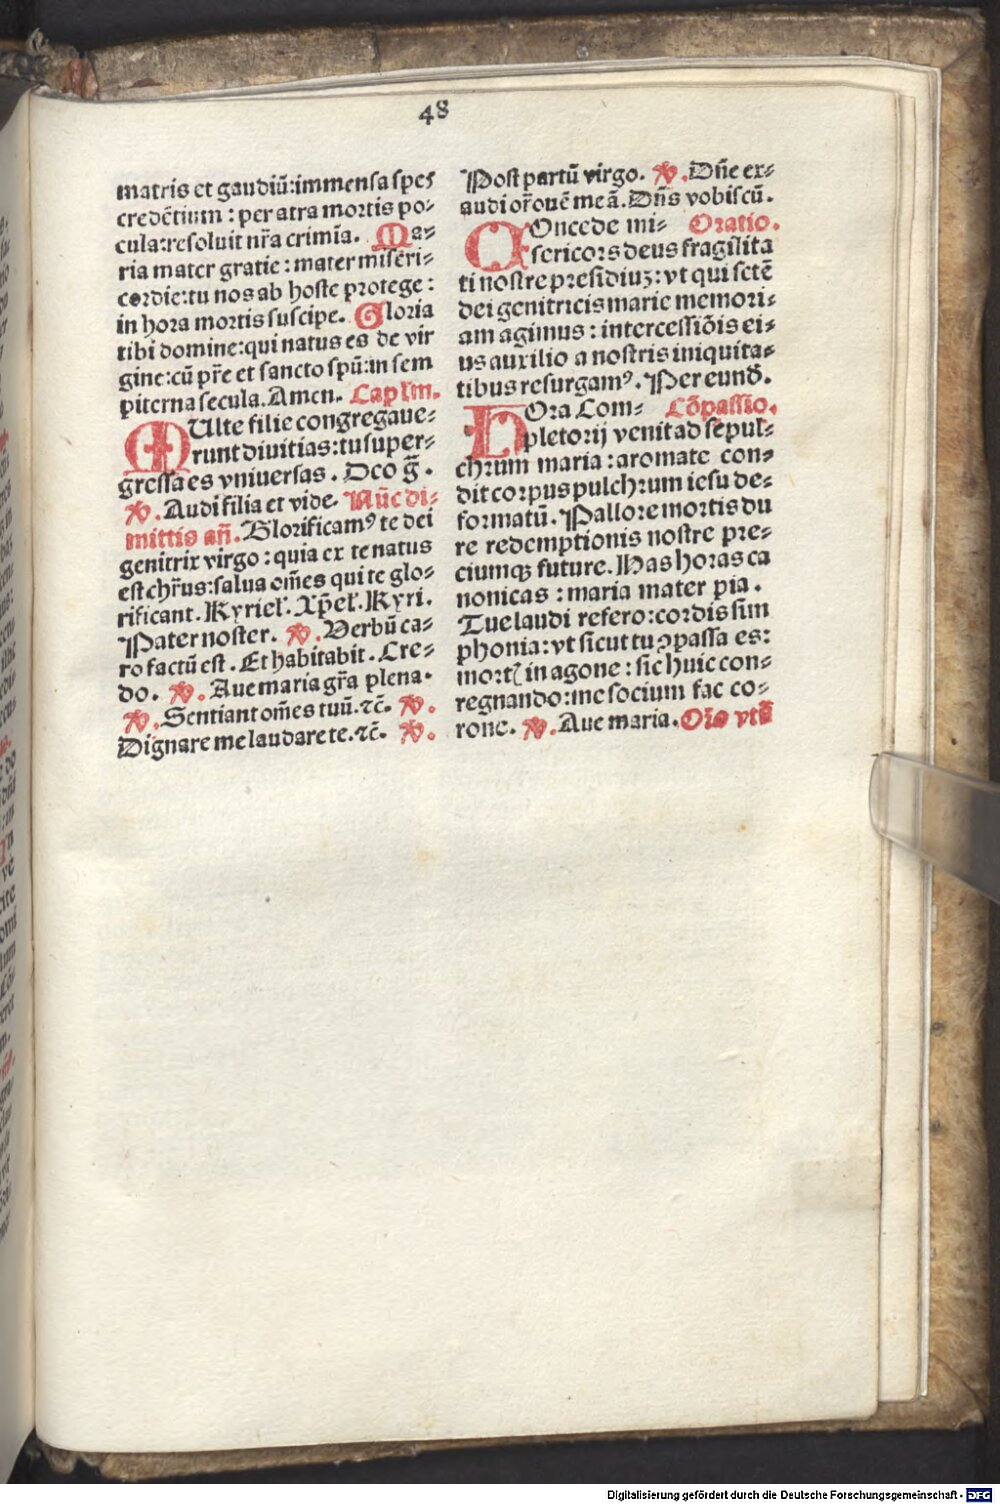 48
matris et gaudiū:immensa spes
credētium : per atra mortis po⸗
cula:resoluit nr̄a crimīa. Ma⸗
ria mater gratie : mater miseri⸗
cordie:tu nos ab hoste protege :
in hora mortis suscipe. Gloria
tibi domine:qui natus es de vir
gine:cū pr̄e et sancto spū:in sem
piterna secula. Amen. Capl̄m.
MUlte filie congregaue⸗
runt diuitias:tu super⸗
gressa es vniuersas . Deo g̅.
℣. Audi filia et vide. Nūc di⸗
mittis an̄. Glorificamꝰ te dei
genitrix virgo : quia ex te natus
est chr̄us:salua om̄es qui te glo⸗
rificant. Kyriel̄. Xp̄el̄. Kyri.
Pater noster. ℣. Verbū ca⸗
ro factū est . Et habitabit . Cre⸗
do. ℣. Aue maria gr̄a plena.
℣. Sentiant om̄es tuū. ⁊c̄. ℣.
Dignare me laudare te. ⁊c̄. ℣.
Post partū virgo. ℣. Dn̄e ex⸗
audi or̄ouē meā. Dn̄s vobiscū.
COncede mi⸗ Oratio.
sericors deus fragilita
ti nostre presidiuꝫ: vt qui sctē
dei genitricis marie memori⸗
am agimus : intercessiōis ei⸗
us auxilio a nostris iniquita⸗
tibus resurgamꝰ. Per eund̄.
HOra Com⸗ Cōpassio.
pletorij venit ad sepul⸗
chrum maria : aromate con⸗
dit corpus pulchrum iesu de⸗
formatū. Pallore mortis du
re redemptionis nostre pre⸗
ciumqꝫ future. Has horas ca
nonicas : maria mater pia .
Tue laudi refero: cordis sim̄
phonia: vt sicut tu ꝯpassa es:
mort̄ in agone : sic huic con⸗
regnando: me socium fac co⸗
rone. ℣. Aue maria. Or̄o vt s̄
Digitalisierung gefördert durch die Deutsche Forschungsgemeinschaft - DFG